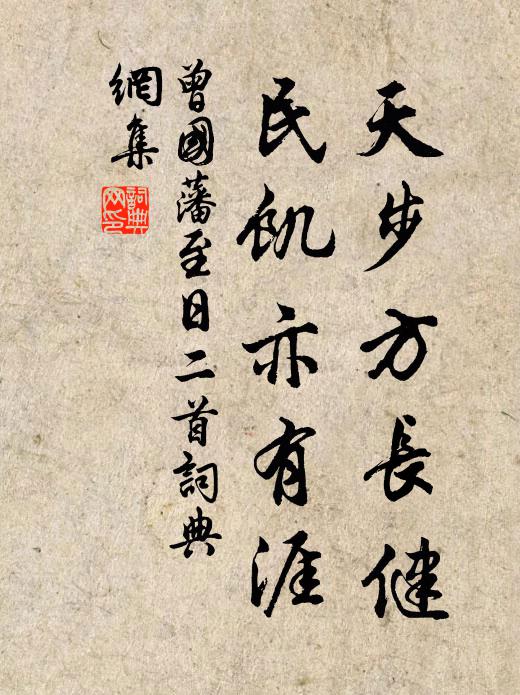 天步方長健
民飢亦有涯
曾國藩至日二首詞典
網集
詞典
网印